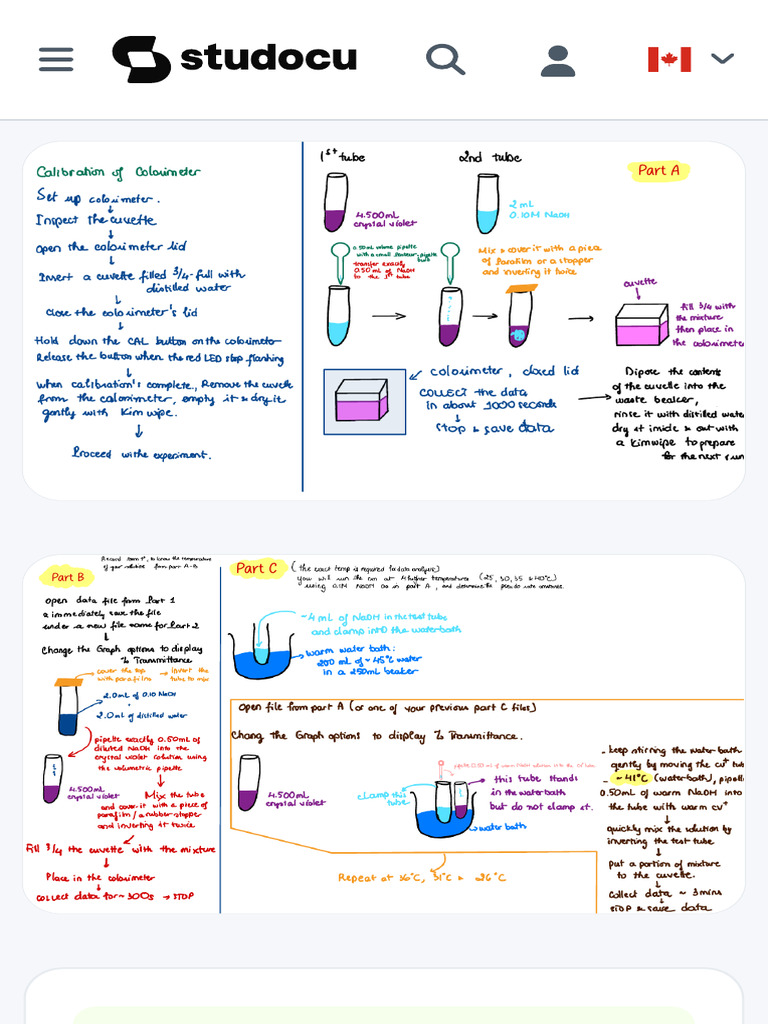 studocu
Calibration of Colourimeter
Set up colorimeter.
Inspect the cuvette
open the colorimeter lid
Insert a cuvette filled 3/4-full with
distilled water
Close the colorimeter's lid
Hold down the CAL button on the colorimeter
Release the button when the red LED stop flashing
When calibration's complete, Remove the cuvette
from the colorimeter, empty it & dry it
gently with Kim wipe.
Proceed withe experiment.
1st tube
2nd tube
Part A
4.500mL
crystal violet
2 mL
0.10M NaOH
0.50mL volume pipette
transfer exactly
0.50 mL of NaOH
to the 1st tube
Mix & cover it with a piece
of Parafilm or a stopper
and inverting it twice
cuvette
fill 3/4 with
the mixture
then place in
the colorimete
colorimeter, closed lid
COLLECT the data
in about 1000 seconds
Stop & save data
Dipose the contents
of the cuvette into the
waste beaker,
rinse it with distilled wate
dry it inside & out with
a kimwipe to prepare
for the next run
Record room T°, to know the temperature
of your solution from part A-B
Part B
open data file from Part 1
& immediately save the file
under a new file name for Part 2
Change the Graph options to display
% Transmittance
cover the top
with parafilm
→ invert the
tube to mix
2.0mL of 0.10 NaOH
+
2.0mL of distilled water
pipette exactly 0.50mL of
diluted NaOH into the
crystal violet solution using
the volumetric pipette
4.500mL
crystal violet
Mix the tube
and cover it with a piece of
parafilm / a rubber stopper
and inverting it twice
Fill 3/4 the cuvette with the mixture
Place in the colorimeter
collect data for ~ 300s → STOP
Part C
(the exact temp is required for data analysis)
you will run the rxn at 4 higher temperatures (25, 30, 35 & 40°C)
using 0.1M NaOH as in part A, and determine the pseudo rate constants.
~4 mL of NaOH in the test tube
and clamp into the waterbath
warm water bath:
200 mL of ~45°C water
in a 250mL beaker
open file from part A (or one of your previous part C files)
Chang the Graph options to display % Transmittance.
4.500mL
crystal violet
clamp this
tube
this tube stands
in the waterbath
but do not clamp it.
water bath
Repeat at 36°C, 31°C & 26°C
- keep stirring the water bath
gently by moving the cv+ tub
- ~41°C (waterbath), pipett
0.50mL of warm NaOH into
the tube with warm cv+
quickly mix the solution by
inverting the test tube
put a portion of mixture
to the cuvette.
Collect data ~ 3 mins
STOP & save data